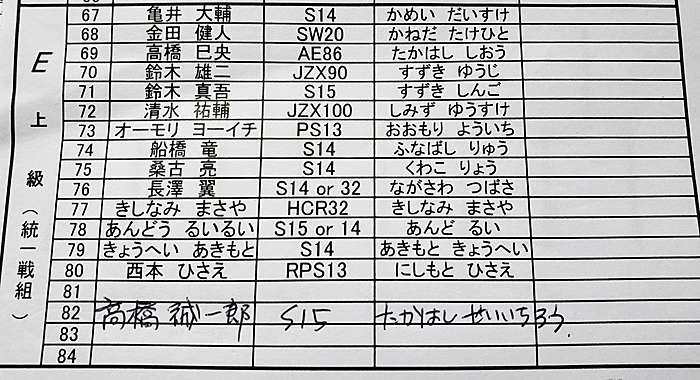 E上級（統一戦組）
67 亀井 大輔 S14 かめい だいすけ
68 金田 健人 SW20 かねだ たけひと
69 高橋 巳央 AE86 たかはし しおう
70 鈴木 雄二 JZX90 すずき ゆうじ
71 鈴木 真吾 S15 すずき しんご
72 清水 祐輔 JZX100 しみず ゆうすけ
73 オーモリ ヨーイチ PS13 おおもり よういち
74 船橋 竜 S14 ふなばし りゅう
75 桑古 亮 S14 くわこ りょう
76 長澤 翼 S14 or 32 ながさわ つばさ
77 きしなみ まさや HCR32 きしなみ まさや
78 あんどう るいるい S15 or 14 あんど るい
79 きょうへい あきもと S14 あきもと きょうへい
80 西本 ひさえ RPS13 にしもと ひさえ
81
82 高橋 誠一郎 S15 たかはし せいいちろう.
83
84